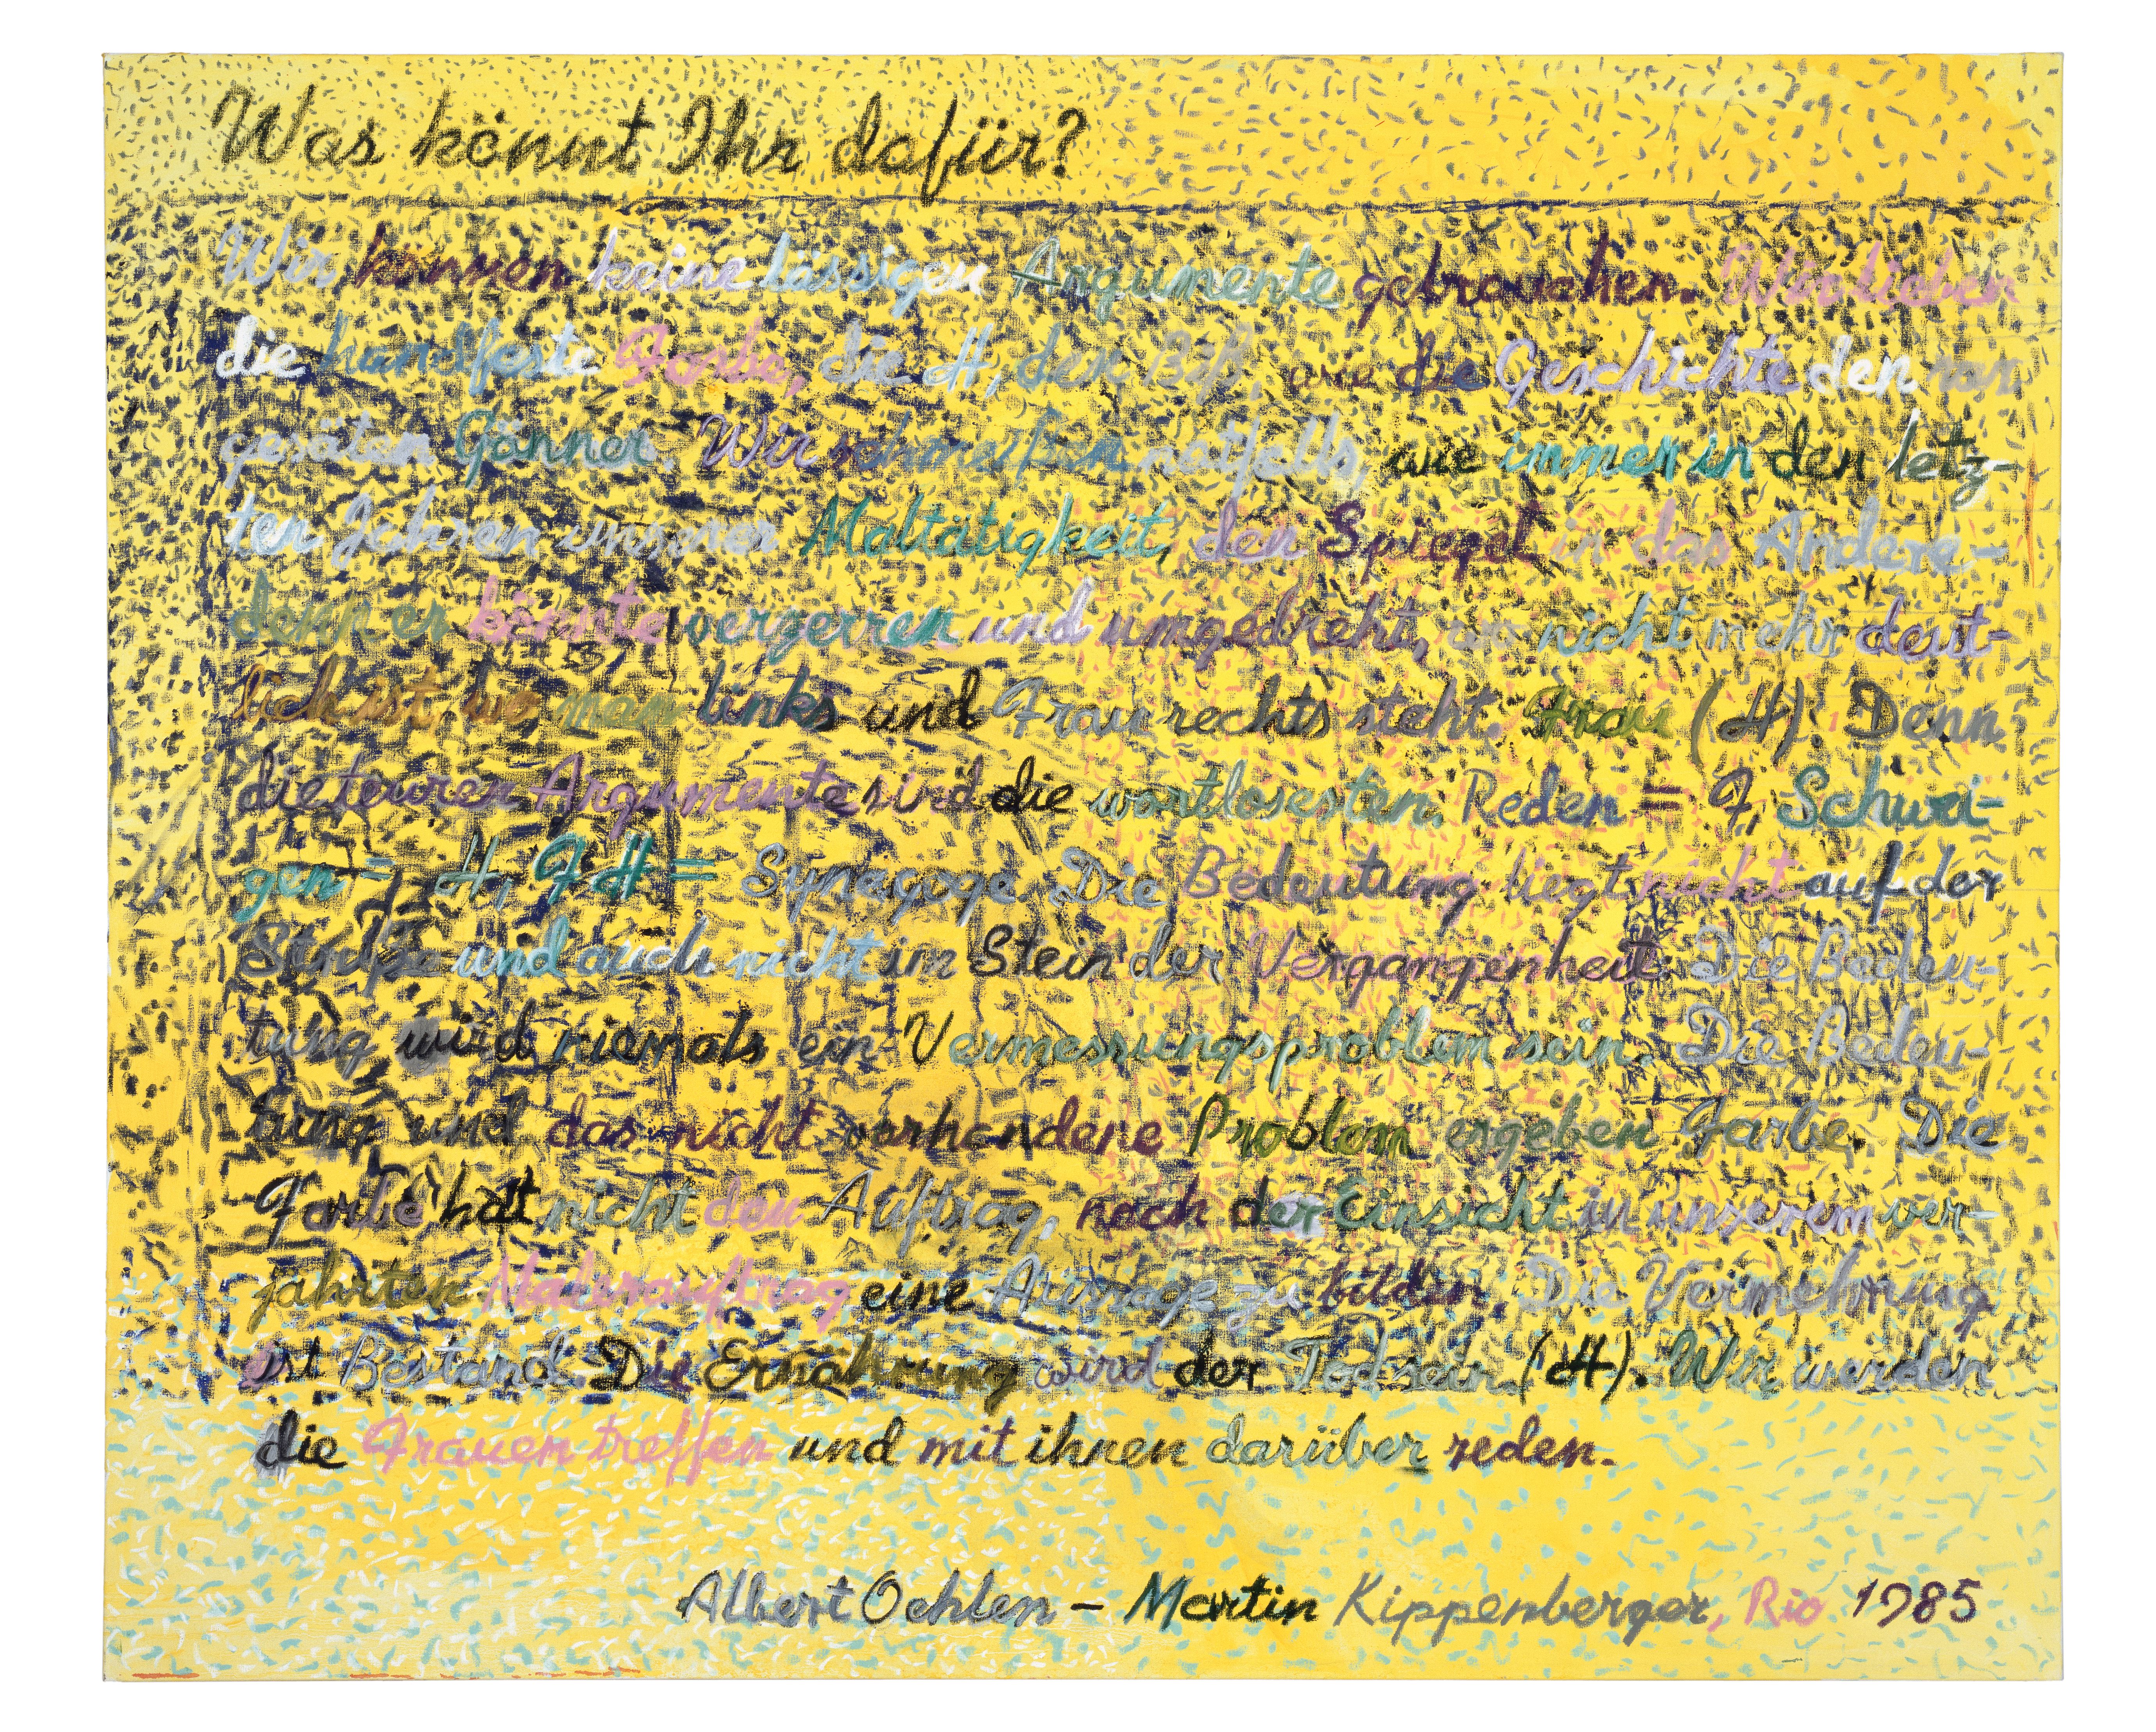 Was könnt Ihr dafür?
Wir können keine lässigen Argumente gebrauchen. Wir lieben
die handfeste Farbe, die H, den wie die Geschichte den rar
gesäten Gönner. Wir schmeißen notfalls, wie immer in den letz-
ten Jahren unserer Maltätigkeit, den Spiegel in das Andere-
denn er könnte verzerren und umgedreht, wo nicht mehr deut-
lich ist, wo man links und Frau rechts steht. Frau (H). Denn
die teuren Argumente sind die wortlosesten. Reden = F, Schwei-
gen = H, FH = Synagoge. Die Bedeutung liegt nicht auf der
Stirn und auch nicht im Stein der Vergangenheit. Die Bedeu-
tung wird niemals ein Vermessungsproblem sein. Die Bedeu-
tung und das nicht vorhandene Problem ergeben Farbe. Die
Farbe hat nicht den Auftrag, nach der Einsicht in unserem ver-
jährten Malerauftrag eine Aussage zu bilden. Die Vermehrung
ist Bestand. Die Ernährung wird der Tod sein. (H). Wir werden
die Frauen treffen und mit ihnen darüber reden.
Albert Oehlen – Martin Kippenberger, Rio 1985